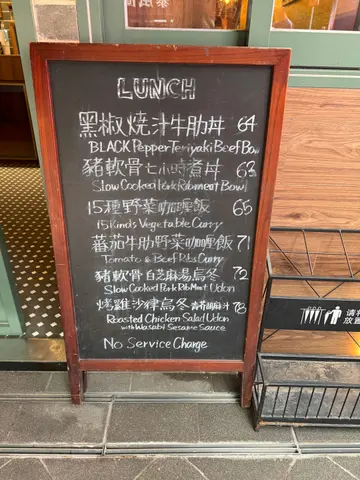 LUNCH
黑椒燒汁牛肋丼 64
BLACK Pepper Teriyaki Beef Bowl
豬軟骨七小時煮丼 63
Slow Cooked Pork Rib meat Bowl
15種野菜咖喱飯 65
15 Kinds Vegetable Curry
蕃茄牛肋野菜咖喱飯 71
Tomato & Beef Ribs Curry
豬軟骨白芝麻湯烏冬 72
Slow Cooked Pork Rib Meat Udon
烤雞沙律烏冬 78
Roasted Chicken Salad Udon
with Wasabi Sesame Sauce
No Service Charge